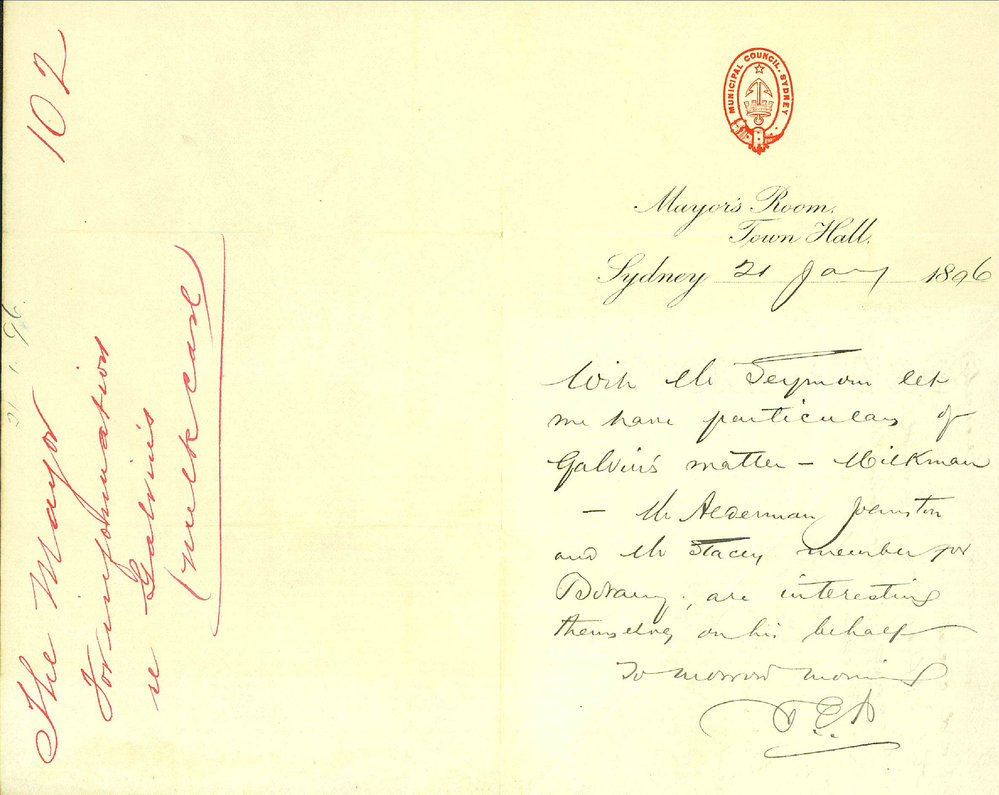 102
The Mayor
For information
re Galvin's
(milk case
21.1.96.
MUNICIPAL COUNCIL. SYDNEY
Mayor's Room,
Town Hall.
Sydney 21 Jany 1896
Will Mr Seymour let
me have particulars of
Galvin's matter - Milkman
- Mr Alderman Johnston
and Mr Stacey, member for
Botany, are interesting
themselves on his behalf
Tomorrow morning